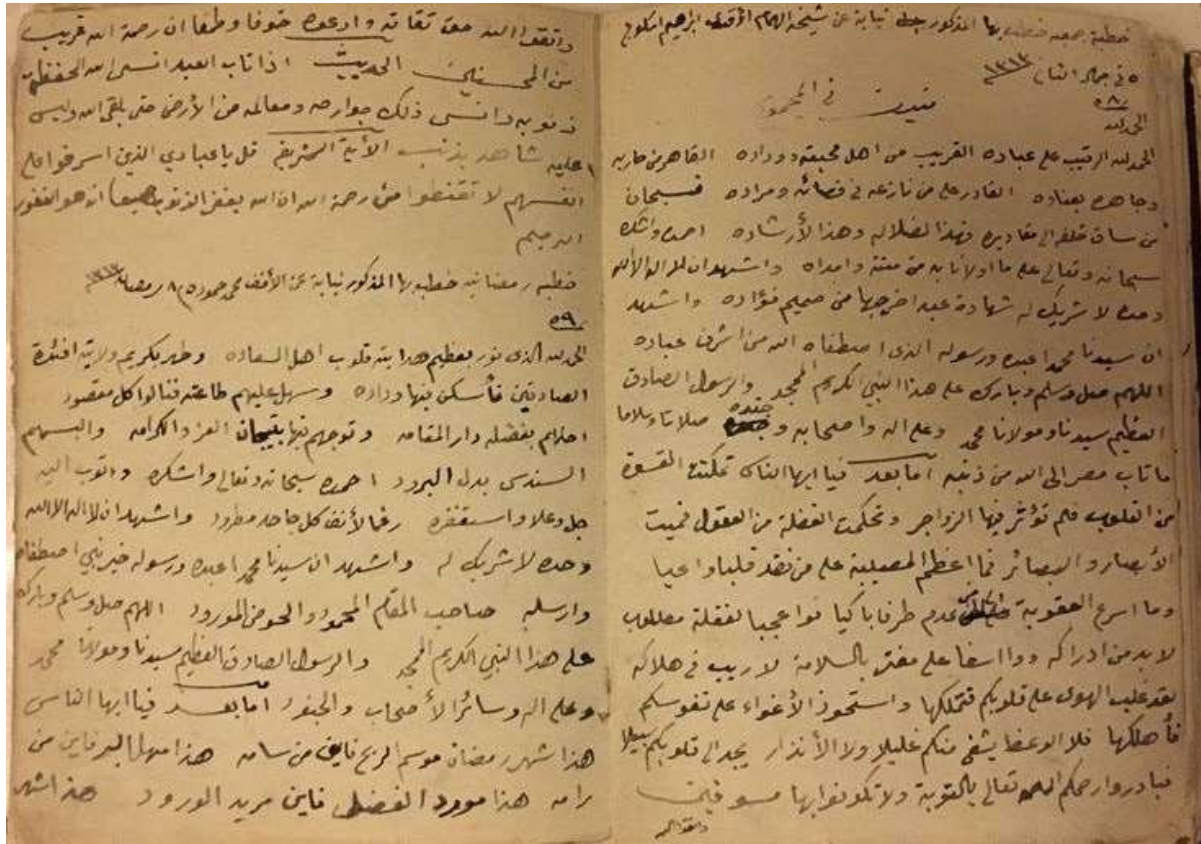 خطبة جمعه خطب بها المذكور نيابة عن شيخه الهمام الأفندي ابراهيم
٥ في جماد الثاني ١٣١٣
٥٨
الحمد لله
الحمد لله الرقيب على عباده القريب من اهل محبته ووداده القاهر من حاربه
وجاهره بعناده القادر على من نازعه في قضائه ومراده فسبحان
من ساق خلقه الى مقاديره فهذا لضلاله وهذا الأرشاده احمده واشكره
سبحانه وتعالى على ما اولانا به من مننه وامداه واشهد ان لا اله الا الله
وحده لا شريك له شهادة عبد اخرجها من صميم فؤاده واشهد
ان سيدنا محمدا عبده ورسوله الذى اصطفاه الله من اشرف عباده
اللهم صل وسلم وبارك على هذا النبي الكريم الممجد والرسول الصادق
العظيم سيدنا ومولانا محمد وعلى اله واصحابه وجنده صلاتا وسلاما
ما تاب مصر الى الله من ذنبه اما بعد فيا ايها الناس تمكنت القسوة
من القلوب فلم تؤثر فيها الزواجر وتحكمت الغفلة من العقول فعميت
الأبصار والبصائر فما اعظم المصيبة على من فقد قلبا واعيا
وما اسرع العقوبة عدم طرفا باكيا فوا عجبا لغفلة مطلوب
لا بد من ادراكه ووا اسفا على مغتر بالسلامة لا ريب في هلاكه
لقد غلب الهوى على قلوبكم فتملكها واستحوذ الأغواء على نفوسكم
فأهلكها فلا الوعظ يشفى منكم غليلا ولا الأنذار يجد الى قلوبكم سبيلا
فبادروا رحمكم الله تعالى بالتوبة ولا تكونوا بها مسوفين
واتقوا الله
واتقوا الله حق تقاته وادعوه خوفا وطمعا ان رحمة الله قريب
من المحسنين الحديث اذا تاب العبد انسى الله الحفظة
ذنوبه وانسى ذلك جوارحه ومعالمه من الأرض حتى يلقى الله وليس
عليه شاهد بذنب الأية الشريفه قل يا عبادي الذين اسرفوا على
انفسهم لا تقنطوا من رحمة الله ان الله يغفر الذنوب جميعا انه هو الغفور
الرحيم
خطبه رمضانيه خطب بها المذكور نيابة عن الأفندى محمد حموده ٨ رمضان ١٣١٣
٥٩
الحمد لله الذى نور بعظيم هدايته قلوب اهل السعاده وطهر بكريم ولايته افئدة
الصادقين فأسكن فيها وداده وسهل عليهم طاعته فنالوا كل مقصود
احلهم بفضله دار المقامه وتوجهم بتيجان العز والكرامه والبسهم
السندس بدل البرود احمده سبحانه وتعالى واشكره واتوب اليه
جل وعلا واستغفره رغما لأنف كل جاحد مطرود واشهد ان لا اله الا الله
وحده لا شريك له واشهد ان سيدنا محمدا عبده ورسوله خير نبي اصطفاه
وارسله صاحب المقام المحمود والحوض المورود اللهم صل وسلم وبارك
على هذا النبي الكريم الممجد والرسول الصادق العظيم سيدنا ومولانا محمد
وعلى اله وسائر الأصحاب والجنود اما بعد فيا ايها الناس
هذا شهر رمضان موسم الربح فاين من سامه هذا منهل البر فاين من
رامه هذا مورد الفضل فاين مريد الورود هذا شهر